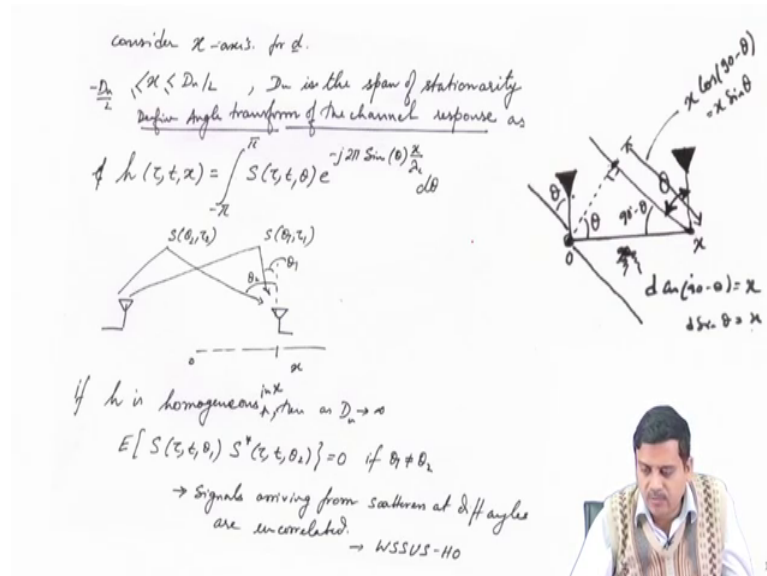 consider x-axis for d.
-Du/2 ≤ x ≤ Du/2 , Du is the span of stationarity
Define Angle transform of the channel response as
h(τ,t,x) = ∫_{-π}^{π} S(τ,t,θ) e^{-j2π Sin(θ) x/λc} dθ
x cos(90-θ)
= x sinθ
θ
θ
θ
90-θ
0
x
S(θ2,τ2)
S(θ1,τ1)
θ1
θ2
d cos(90-θ) = x
d sin θ = x
0
x
if h is homogeneous in x, then as Du → ∞
E[S(τ,t,θ1) S*(τ,t,θ2)} = 0 if θ1 ≠ θ2
→ Signals arriving from scatterers at diff angles
are uncorrelated.
→ WSSUS-HO